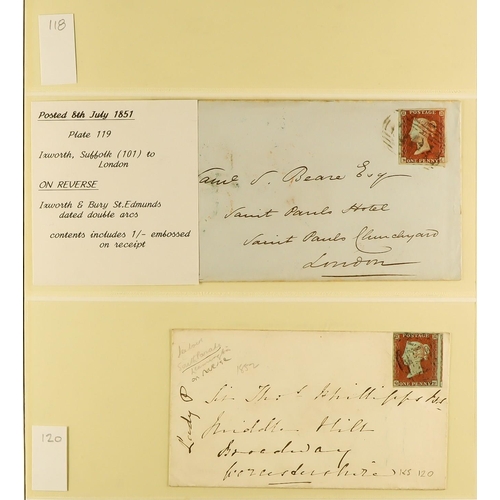 118
Posted 8th July 1851
Plate 119
Ixworth, Suffolk (101) to
London
ON REVERSE
Ixworth & Bury St.Edmunds
dated double arcs
contents includes 1/- embossed
on receipt
POSTAGE
ONE PENNY
Saml S. Beare Esq
Saint Pauls Hotel
Saint Pauls Churchyard
London
120
on reverse
1852
Lady P
POSTAGE
ONE PENNY
Sir Thos Phillipps
Middle Hill
Broadway
Worcestershire
120